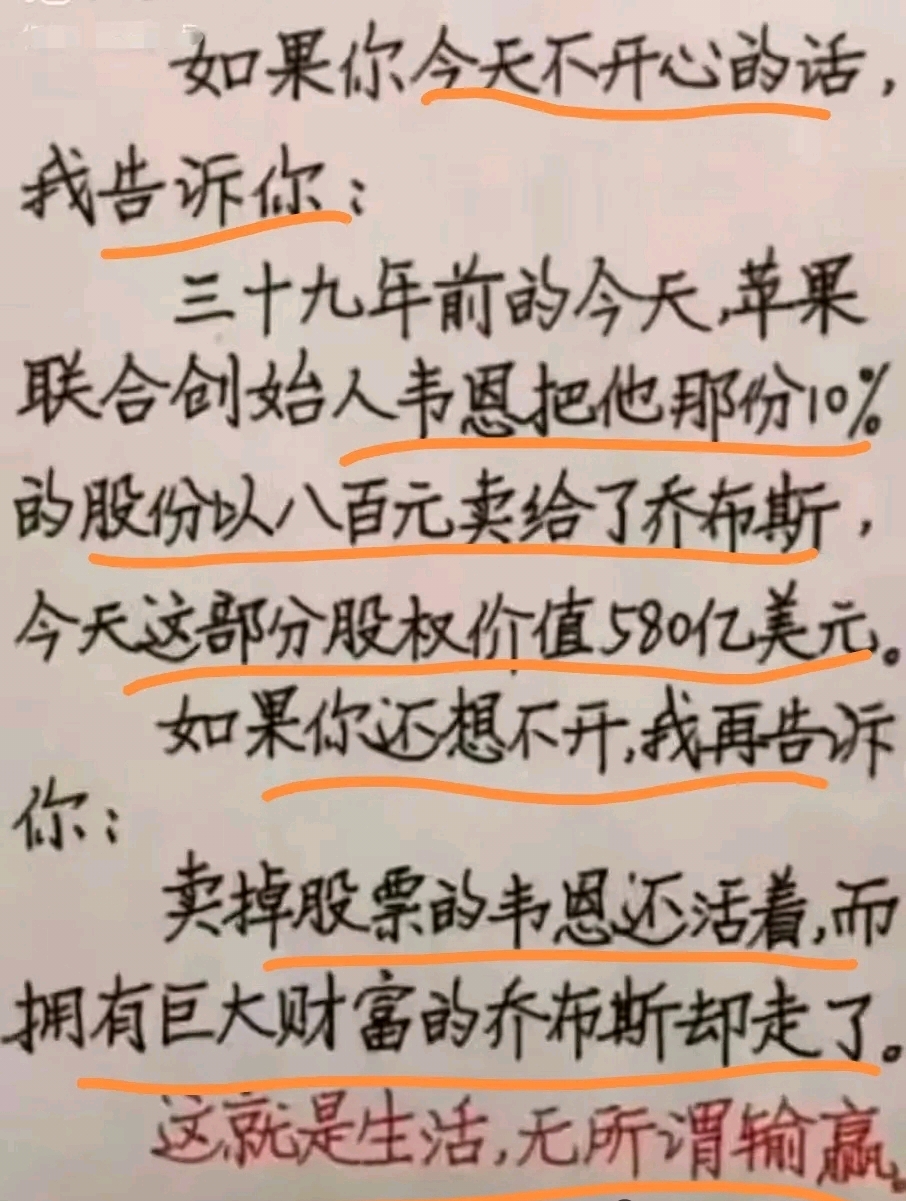 如果你今天不开心的话，
我告诉你：
三十九年前的今天，苹果
联合创始人韦恩把他那份10%
的股份以八百元卖给了乔布斯，
今天这部分股权价值580亿美元。
如果你还想不开，我再告诉
你：
卖掉股票的韦恩还活着，而
拥有巨大财富的乔布斯却走了。
这就是生活，无所谓输赢。